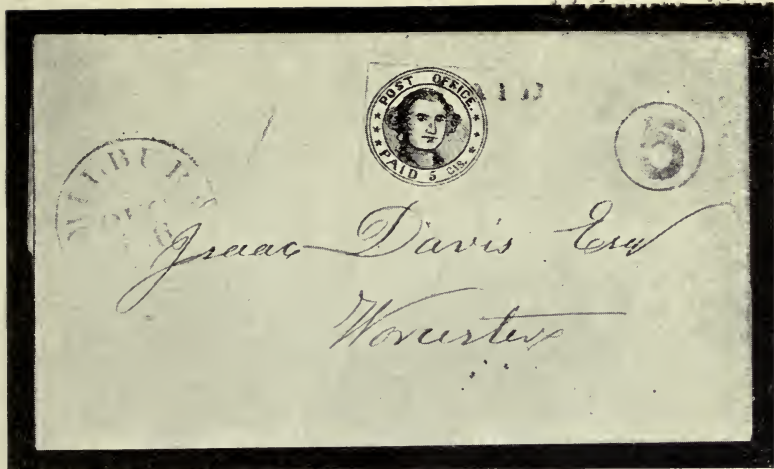 POST OFFICE.
PAID 5 CTS.
5
MILBURY
Isaac Davis Esq
Worcester